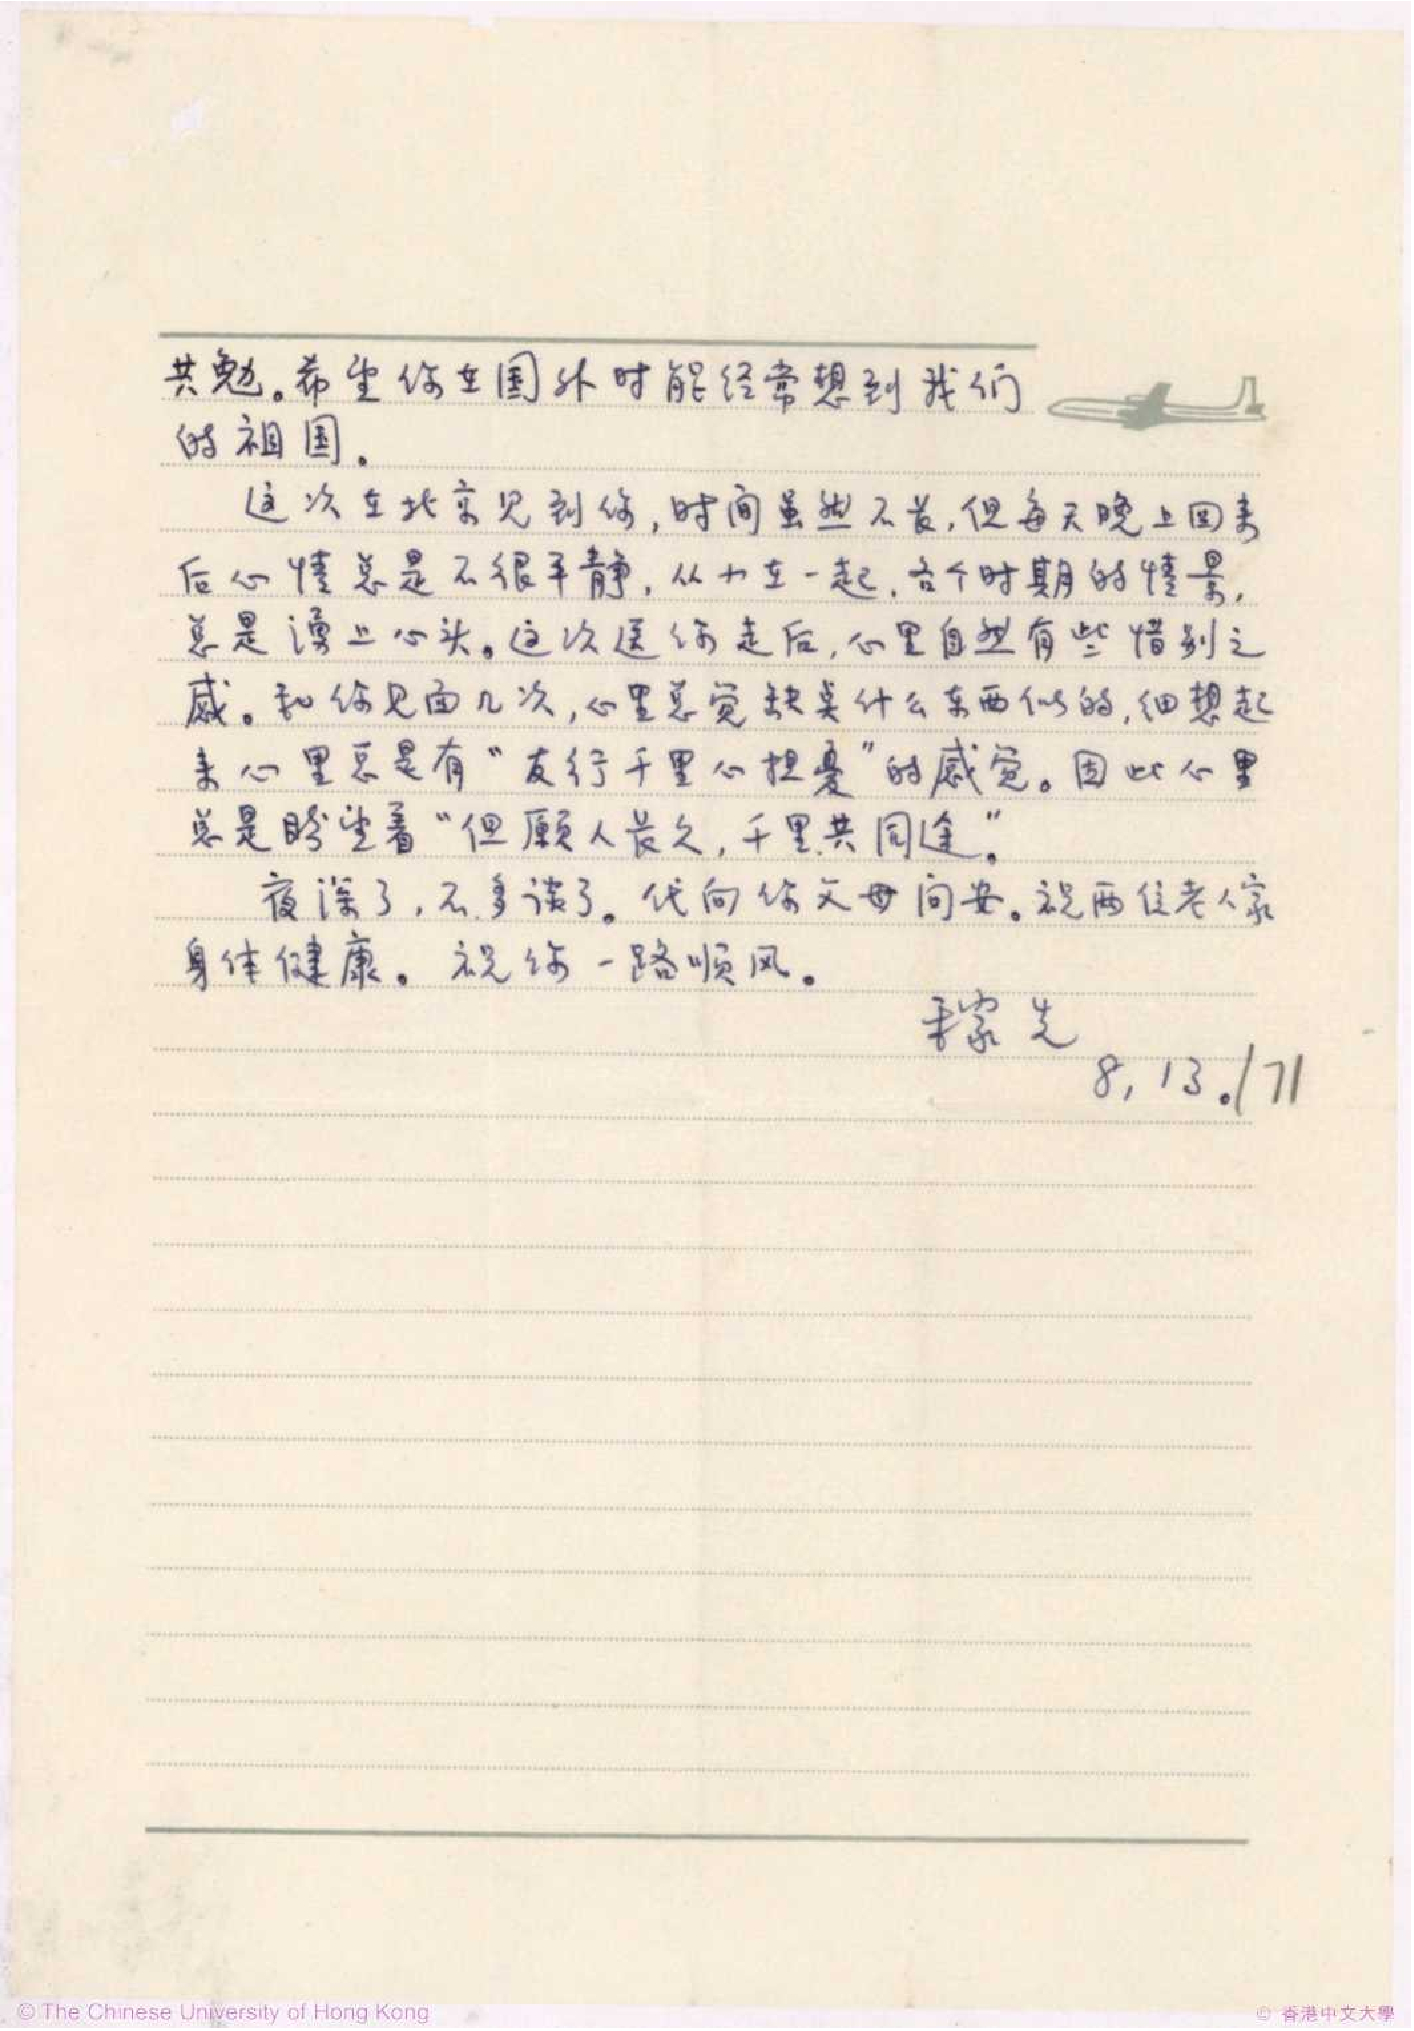 共勉。希望你在国外时能经常想到我们
的祖国。
这次在北京见到你,时间虽然不长,但每天晚上回来
后心情总是不很平静,从小在一起,各个时期的情景,
总是湧上心头。这次送你走后,心里自然有些惜别之
感。和你见面几次,心里总觉缺莫什么东西似的,细想起
来心里总是有“友行千里心担憂”的感觉。因此心里
总是盼望着“但願人长久,千里共同途。”
夜深了,不多谈了。代向你父母问安。祝两位老人家
身体健康。祝你一路顺风。
稼先
8,13./71
© The Chinese University of Hong Kong
© 香港中文大學